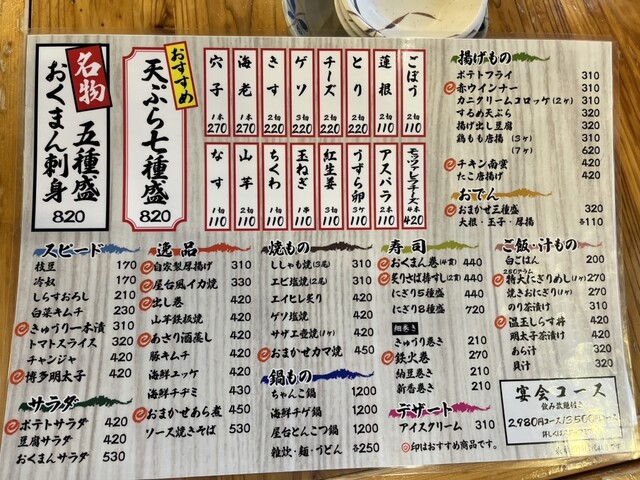 名物
おくまん刺身
五種盛
820
おすすめ
天ぷら七種盛
820
穴子 1本 270
海老 1本 270
きす 2切 220
ゲソ 3切 220
チーズ 2切 220
とり 2切 220
蓮根 2切 110
ごぼう 2切 110
なす 1切 110
山芋 2切 110
ちくわ 1切 110
玉ねぎ 1串 110
紅生姜 3切 110
うずら卵 3ケ 110
アスパラ 2本 110
モッツァレラチーズ 420
揚げもの
ポテトフライ 310
赤ウインナー 310
カニクリームコロッケ(2ヶ) 310
するめ天ぷら 320
揚げ出し豆腐 310
鶏もも唐揚(3ヶ) 310
(7ヶ) 620
チキン南蛮 420
たこ唐揚げ 420
おでん
おまかせ三種盛 320
大根・玉子・厚揚 各110
スピード
枝豆 170
冷奴 170
しらすおろし 210
白菜キムチ 230
きゅうり一本漬 310
トマトスライス 320
チャンジャ 420
博多明太子 420
サラダ
ポテトサラダ 420
豆腐サラダ 420
おくまんサラダ 530
逸品
自家製厚揚げ 310
屋台風イカ焼 330
出し巻 420
山芋鉄板焼 420
あさり酒蒸し 420
豚キムチ 420
海鮮ユッケ 420
海鮮チヂミ 430
おまかせあら煮 450
ソース焼きそば 530
焼もの
ししゃも焼(3尾) 310
エビ塩焼(2尾) 310
エイヒレ炙り 420
ゲソ塩焼 420
サザエ壺焼(1ヶ) 420
おまかせカマ焼 450
鍋もの
ちゃんこ鍋 1,200
海鮮チゲ鍋 1,200
屋台とんこつ鍋 1,200
雑炊・麺・うどん 各250
寿司
おくまん巻(4貫) 440
炙りさば棒すし(2貫) 440
にぎり5種盛 440
にぎり8種盛 720
細巻き
きゅうり巻き 210
鉄火巻 270
納豆巻き 210
新香巻き 210
デザート
アイスクリーム 310
印はおすすめ商品です。
ご飯・汁もの
白ごはん 200
250グラム
特大にぎりめし(1ヶ) 270
焼きおにぎり(1ヶ) 270
のり茶漬け 310
温玉しらす丼 420
明太子茶漬け 420
あら汁 320
貝汁 320
宴会コース
飲み放題付き
2,980円コース/3,500円コース